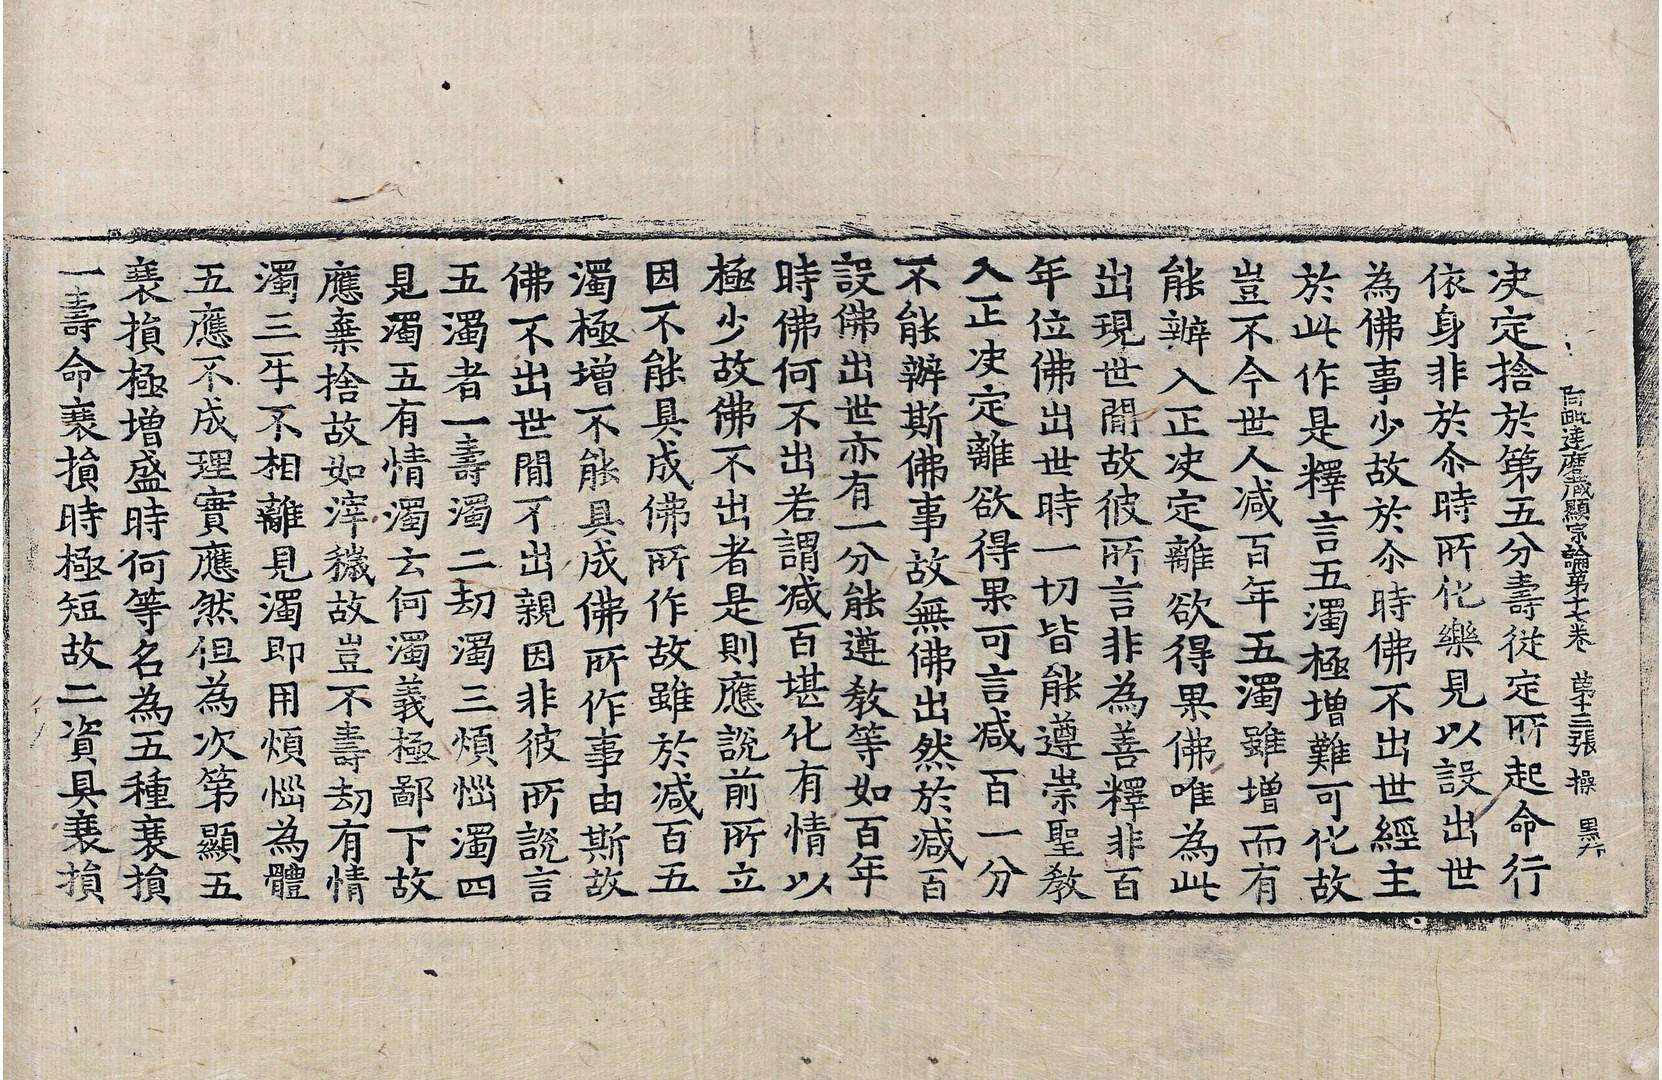 阿毗達磨藏顯宗論第十七卷 第十三張 操
决定捨於第五分壽從定所起命行
依身非於尒時所化樂見以設出世
為佛事少故於尒時佛不出世經主
於此作是釋言五濁極增難可化故
豈不今世人减百年五濁雖增而有
能辦入正决定離欲得果佛唯為此
出現世閒故彼所言非為善釋非百
年位佛出世時一切皆能遵崇聖教
入正决定離欲得果可言减百一分
不能辦斯佛事故無佛出然於减百
設佛出世亦有一分能遵教等如百年
時佛何不出若謂减百堪化有情以
極少故佛不出者是則應說前所立
因不能具成佛所作故雖於减百五
濁極增不能具成佛所作事由斯故
佛不出世閒不出親因非彼所說言
五濁者一壽濁二劫濁三煩惱濁四
見濁五有情濁云何濁義極鄙下故
應棄捨故如滓穢故豈不壽劫有情
濁三互不相離見濁即用煩惱為體
五應不成理實應然但為次第顯五
衰損極增盛時何等名為五種衰損
一壽命衰損時極短故二資具衰損